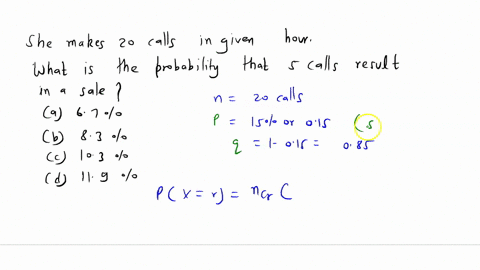 She makes 20 calls in given hour.
What is the probability that 5 calls result
in a sale?
(a) 6.7 %
(b) 8.3 %
(c) 10.3 %
(d) 11.9 %
n = 20 calls
P = 15% or 0.15 (s
q = 1 - 0.15 = 0.85
P(X = r) = nCr (